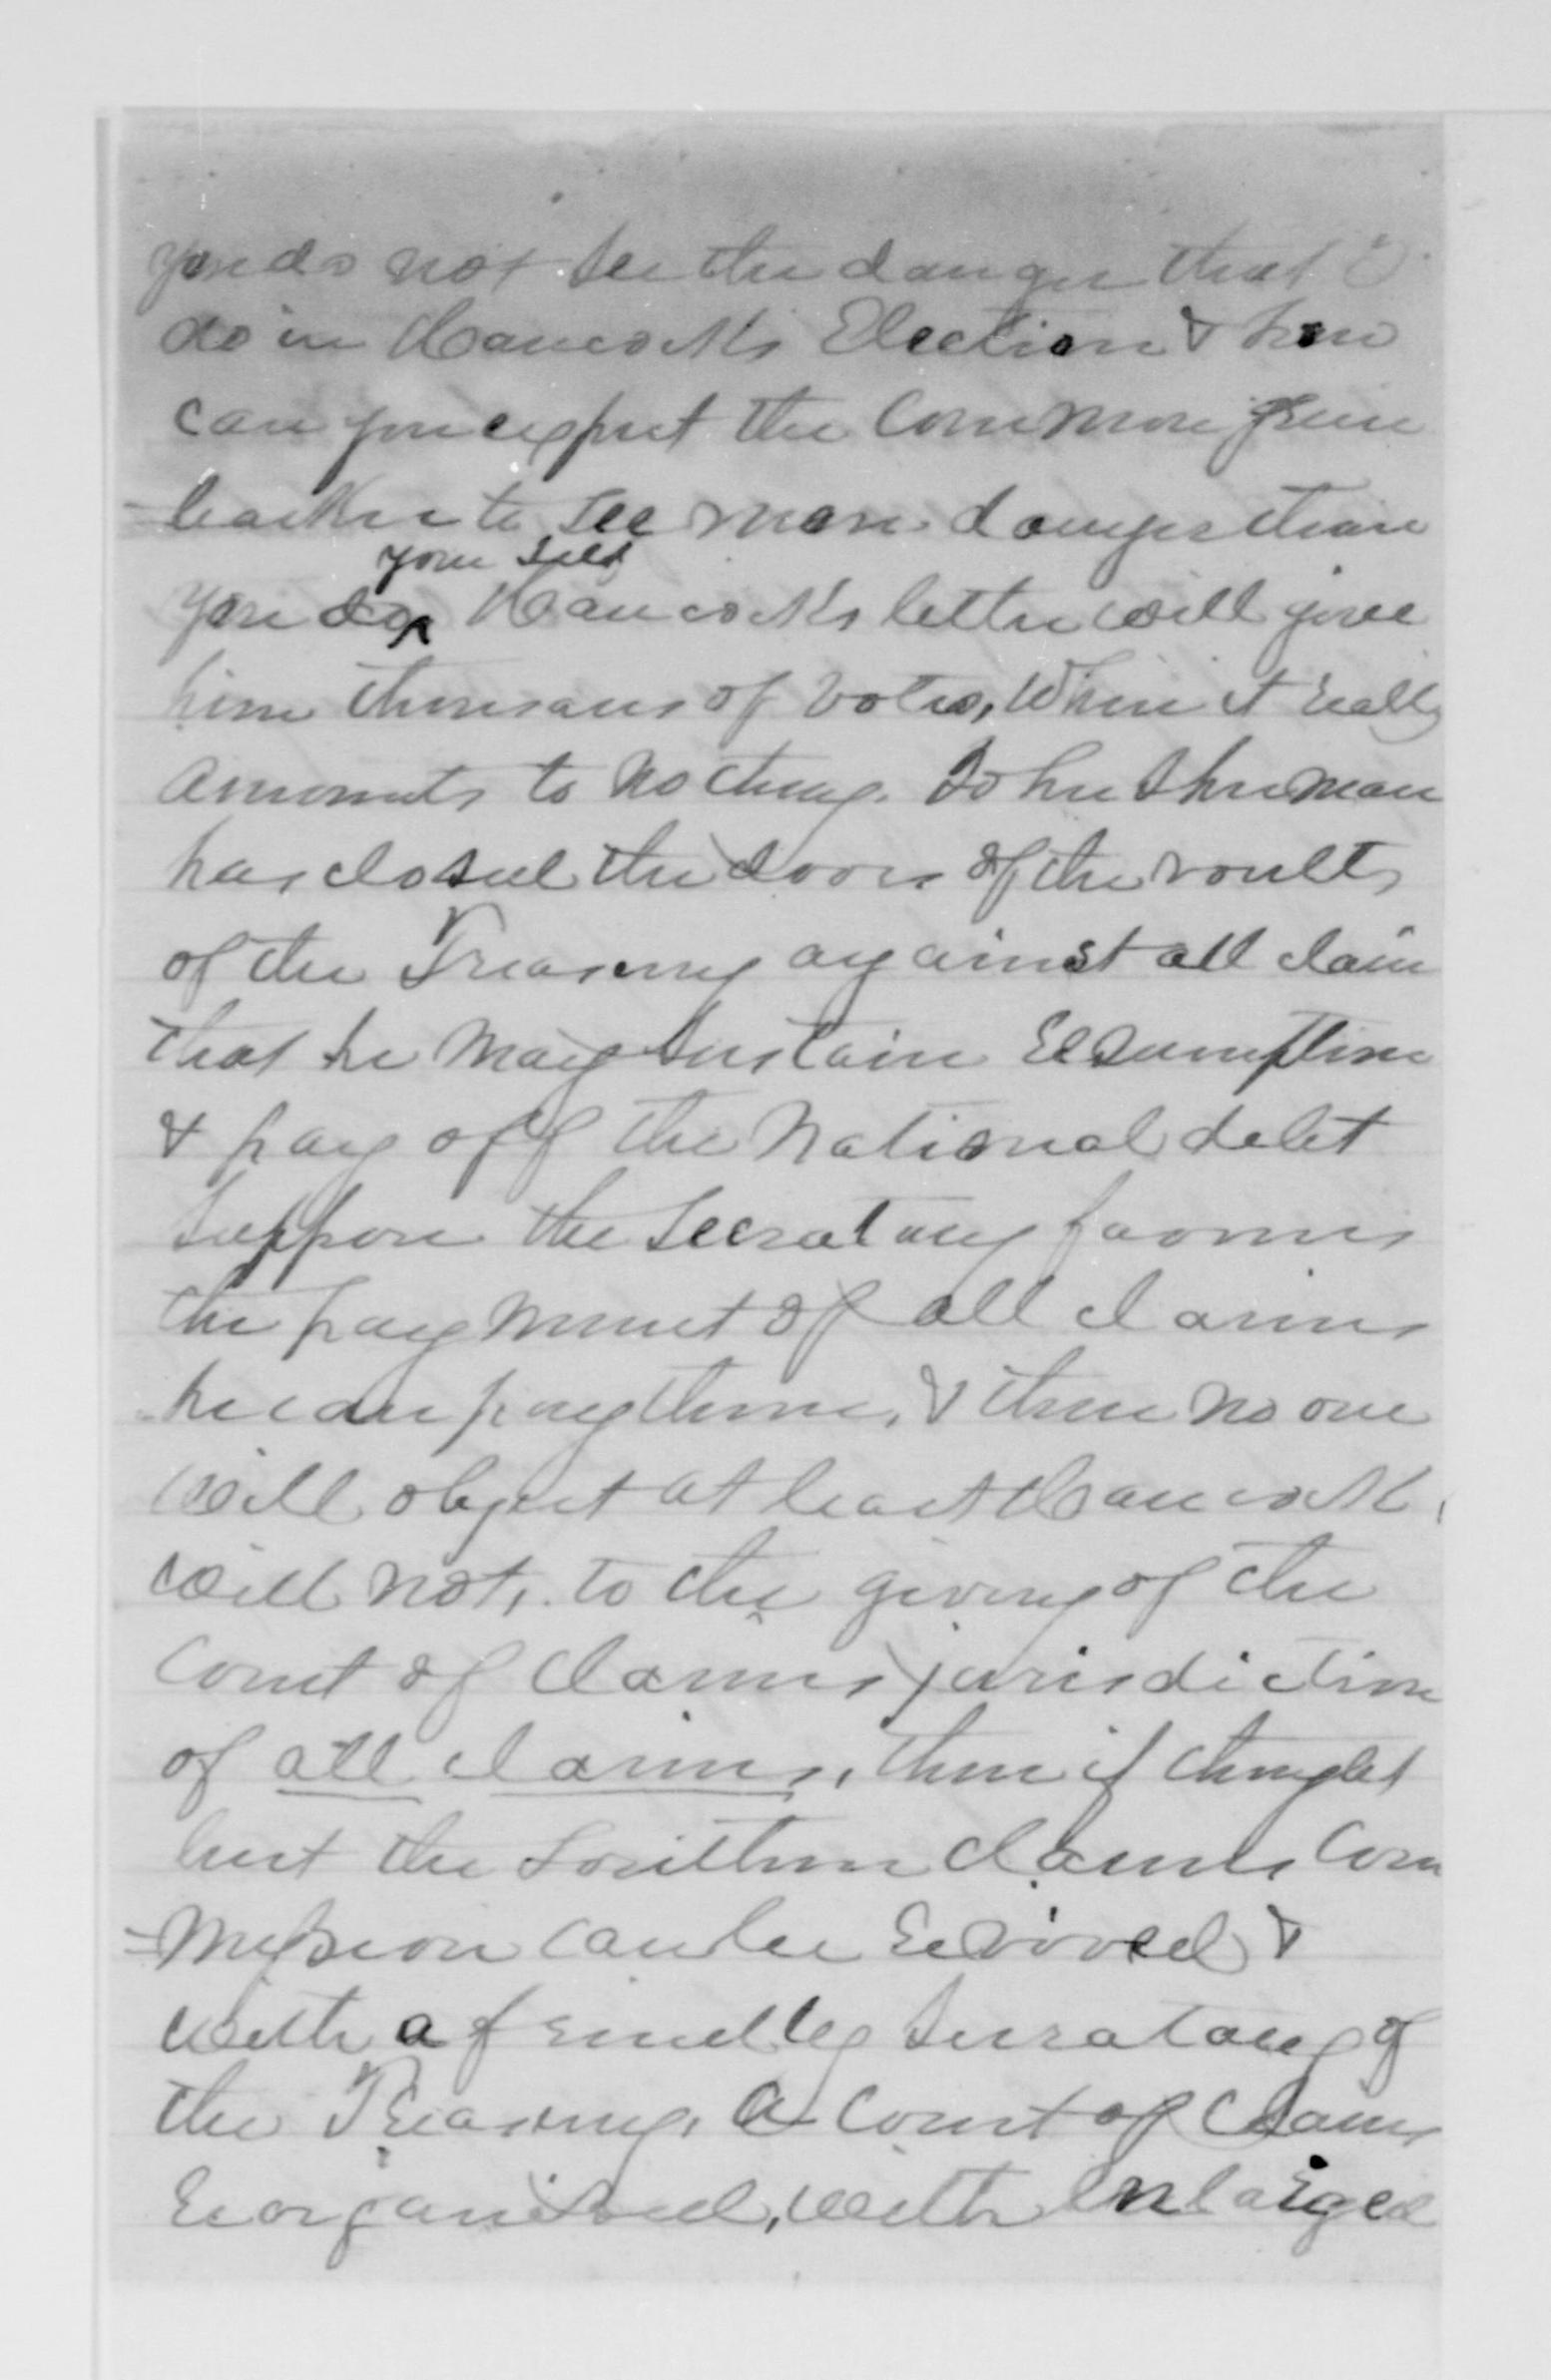 you do not see the danger that I
do in Hancock's Election & how
can you expect the common green
-backer to see more danger than
your self
you do Hancock's letter will give
him thousans of votes, When it really
amounts to nothing. John Sherman
has closed the doors of the vaults
of the Treasury against all claims
that he may sustain resumption
& pay off the National debt
Suppose the Secratary favours
the payment of all claims
he can pay them, & then no one
will object at least Hancock,
will not, to the giving of the
Court of Claims jurisdiction
of all claims, then if thought
best the Southern Claims Com
-mission can be revived &
with a friendly Secratary of
the Treasury, a Court of Claims
reorganised, with enlarged